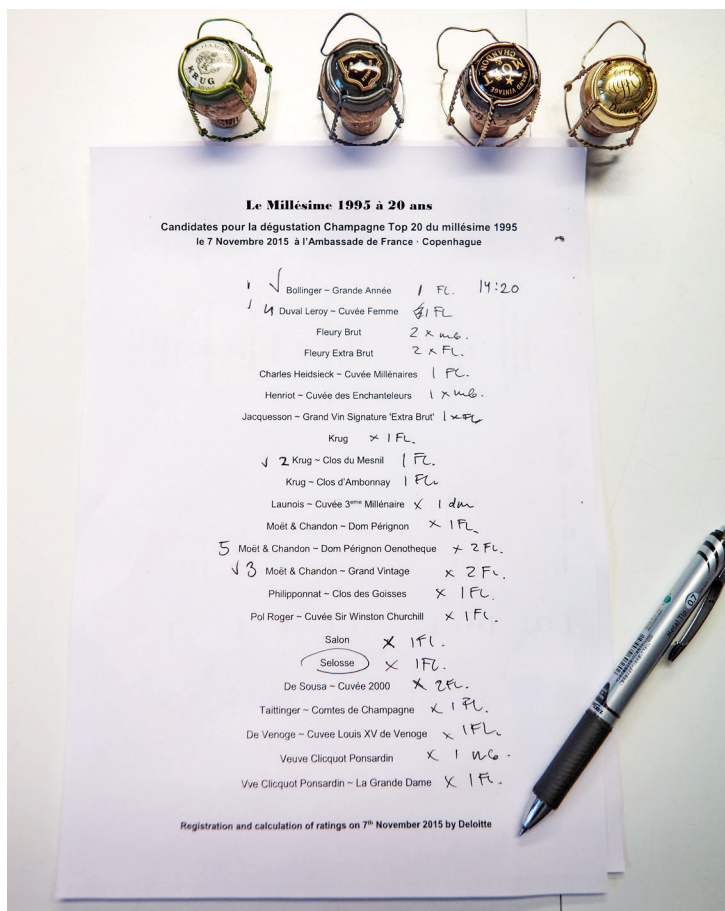 KRUG
MOËT & CHANDON
GRAND VINTAGE
Le Millésime 1995 à 20 ans
Candidates pour la dégustation Champagne Top 20 du millésime 1995
le 7 Novembre 2015 à l'Ambassade de France · Copenhague
Bollinger ~ Grande Année 1 FL. 14:20
4 Duval Leroy ~ Cuvée Femme 1 FL
Fleury Brut 2 x mG.
Fleury Extra Brut 2 x FL.
Charles Heidsieck ~ Cuvée Millénaires 1 FL.
Henriot ~ Cuvée des Enchanteleurs 1 x mG.
Jacquesson ~ Grand Vin Signature 'Extra Brut' 1 x FL
Krug x 1 FL.
√ 2 Krug ~ Clos du Mesnil 1 FL.
Krug ~ Clos d'Ambonnay 1 FL
Launois ~ Cuvée 3eme Millénaire x 1 dm
Moët & Chandon ~ Dom Pérignon x 1 FL
5 Moët & Chandon ~ Dom Pérignon Oenotheque x 2 FL.
√ 3 Moët & Chandon ~ Grand Vintage x 2 FL.
Philipponnat ~ Clos des Goisses x 1 FL.
Pol Roger ~ Cuvée Sir Winston Churchill x 1 FL.
Salon x 1 FL.
Selosse x 1 FL.
De Sousa ~ Cuvée 2000 x 2 FL.
Taittinger ~ Comtes de Champagne x 1 FL.
De Venoge ~ Cuvee Louis XV de Venoge x 1 FL.
Veuve Clicquot Ponsardin x 1 mG.
Vve Clicquot Ponsardin ~ La Grande Dame x 1 FL.
Registration and calculation of ratings on 7th November 2015 by Deloitte
Metal Tip 0.7